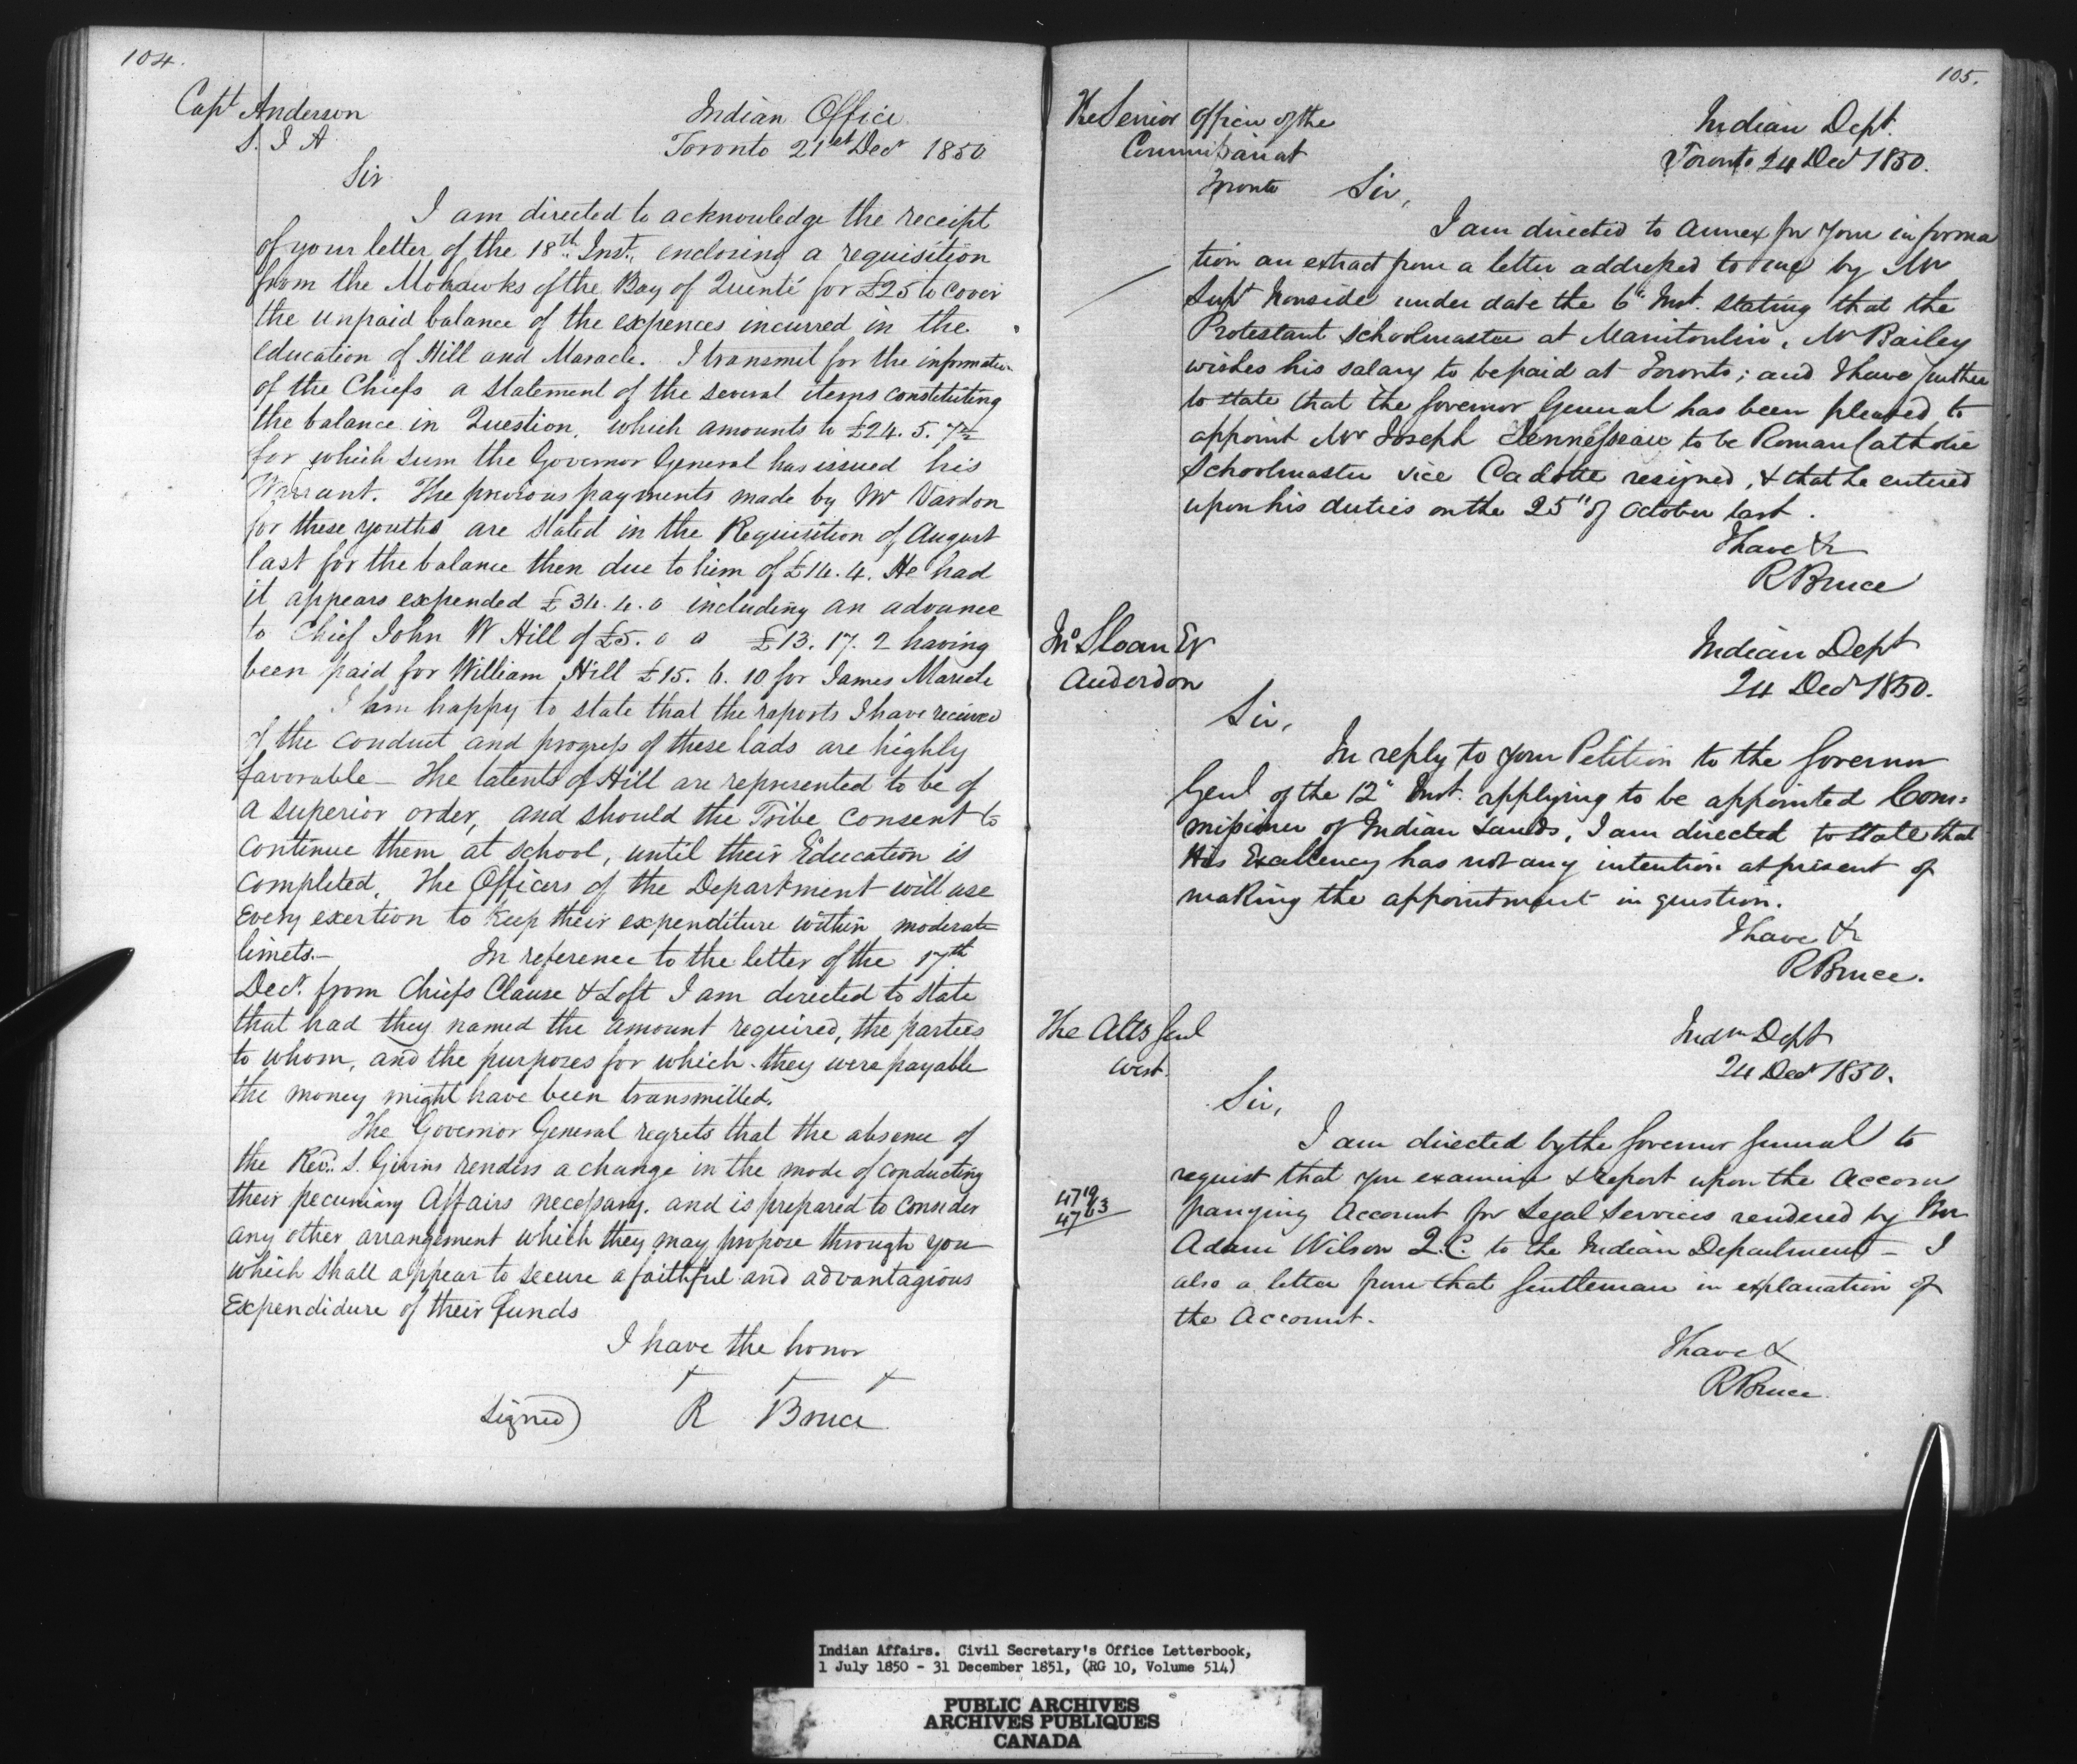 104.
Capt Anderson
S. I A
Indian Office
Toronto 21st Decr 1850
Sir
I am directed to acknowledge the receipt
of your letter of the 18th Inst., enclosing a requisition
from the Mohawks of the Bay of Quinté for £25 to cover
the unpaid balance of the expences incurred in the
education of Hill and Maracle. I transmit for the information
of the Chiefs a statement of the several items constituting
the balance in Question, which amounts to £24. 5. 7½
for which sum the Governor General has issued his
Warrant. The previous payments made by Mr Vardon
for these youths are stated in the Requisition of August
last for the balance then due to him of £14. 4. He had
it appears expended £34. 4. 0 including an advance
to Chief John W Hill of £5. 0 0 £13. 17. 2 having
been paid for William Hill £15. 6. 10 for James Maricle
I am happy to state that the reports I have received
of the conduct and progress of these lads are highly
favorable – The talents of Hill are represented to be of
a superior order, and should the Tribe consent to
continue them at school, until their Education is
completed, The Officers of the Department will use
Every exertion to keep their expenditure within moderate
limets.– In reference to the letter of the 17th
Decr. from Chiefs Clause & Loft I am directed to state
that had they named the amount required, the parties
to whom, and the purposes for which they were payable
the money might have been transmitted.
The Governor General regrets that the absence of
the Revd. S. Givins renders a change in the mode of conducting
their pecuniary Affairs necessary, and is prepared to consider
any other arrangement which they may propose through you
which shall appear to secure a faithful and advantagious
Expendidure of their funds
I have the honor
Signed) R Bruce
105.
The Senior Officer of the
Commissariat
Toronto
Indian Dept.
Toronto 24 Decr 1850.
Sir,
I am directed to annex for your informa
tion an extract from a letter addressed to me by Mr
Supt Ironside under date the 6" Inst. stating that the
Protestant schoolmaster at Manitoulin, Mr Bailey
wishes his salary to be paid at Toronto; and I have further
to state that the Governor General has been pleased to
appoint Mr Joseph Jennesseau to be Roman Catholic
Schoolmaster vice Cadotte resigned, & that he entered
upon his duties on the 25" of October last.
I have &c
R Bruce
Jno Sloan Er
Anderdon
Indian Dept
24 Decr 1850.
Sir,
In reply to your Petition to the Governor
Genl of the 12" Inst. applying to be appointed Com=
missioner of Indian Lands, I am directed to state that
His Excellency has not any intention at present of
making the appointment in question.
I have &c
R Bruce.
The Atty Genl
West.
Indn Dept
24 Decr 1850.
Sir,
I am directed by the Governor General to
request that you examine & report upon the accom
4719
4763
panying Account for Legal Services rendered by Mr
Adam Wilson Q.C. to the Indian Department – &
also a letter from that Gentleman in explanation of
the Account.
I have &
R Bruce.
Indian Affairs. Civil Secretary's Office Letterbook,
1 July 1850 - 31 December 1851, (RG 10, Volume 514)
PUBLIC ARCHIVES
ARCHIVES PUBLIQUES
CANADA